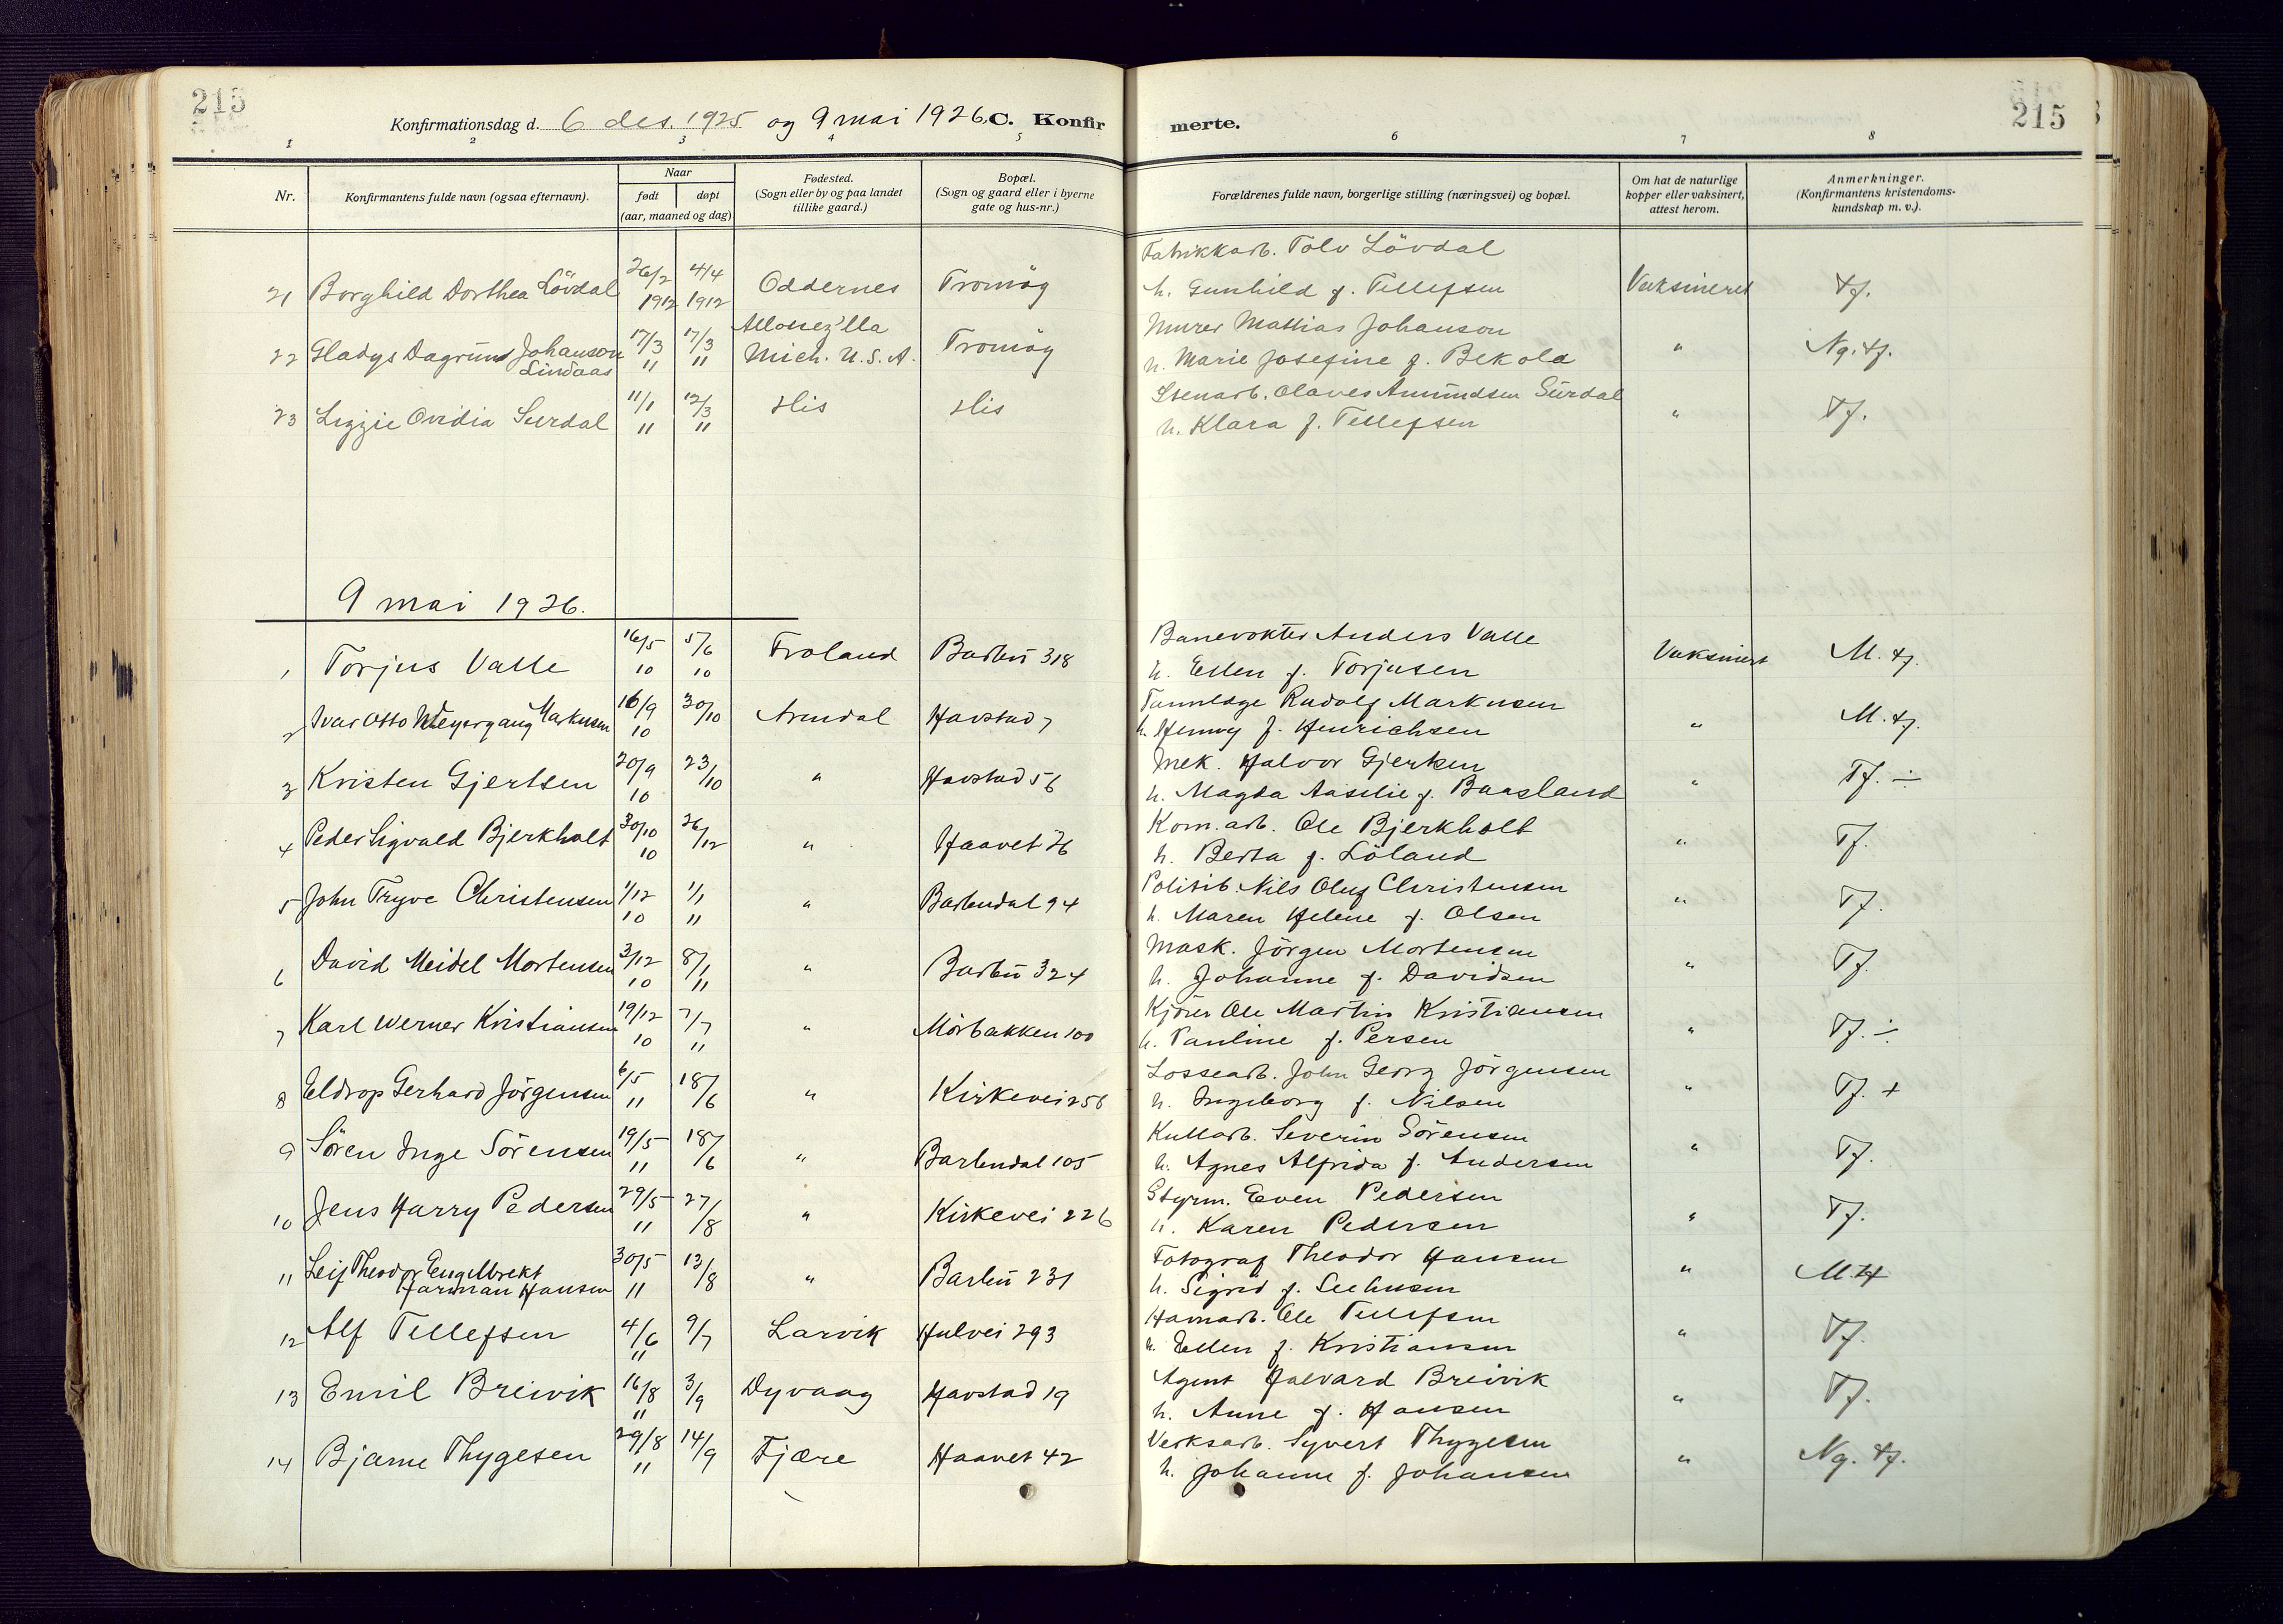 215
Konfirmationsdag d. 6 des. 1925 og 9 mai 1926. C. Konfir
merte.
215
1 2 3 4 5 6 7 8
Nr.
Konfirmantens fulde navn (ogsaa efternavn).
Naar
født døpt
(aar, maaned og dag)
Fødested.
(Sogn eller by og paa landet
tillike gaard.)
Bopæl.
(Sogn og gaard eller i byerne
gate og hus-nr.)
Forældrenes fulde navn, borgerlige stilling (næringsvei) og bopæl.
Om hat de naturlige
kopper eller vaksinert,
attest herom.
Anmerkninger.
(Konfirmantens kristendoms-
kundskap m. v.).
Fabrikkarb. Tolv Lövdal
21 Borghild Dorthea Lövdal 26/2 1912 4/4 1912 Oddernes Tromöy h. Gunhild f. Tellefsen Vaksineret Tf.
Murer Mathias Johanson
22 Gladys Dagrun Johanson Lindaas 17/3 " 17/3 " Mich. U.S.A. Tromöy h. Marie Josefine f. Bekola " Ng. tf.
Stenarb. Olaves Amundsen Surdal
23 Lizzie Ovidia Surdal 11/1 " 12/3 " His His h. Klara f. Tellefsen " Tf.
9 mai 1926.
Banevokter Anders Valle
1 Torjus Valle 16/5 10 5/6 10 Froland Barbu 318 h. Ellen f. Torjusen Vaksinert M. tf.
Tannlæge Rudolf Markusen
2 Ivar Otto Meyergang Markusen 16/9 10 30/10 Arendal Havstad 7 h. Henny f. Henrichsen " M. tf.
Mek. Halvor Gjertsen
3 Kristen Gjertsen 20/9 10 23/10 " Havstad 56 h. Magda Aasilie f. Baasland " Tf. ÷
Kom. arb. Ole Bjerkholt
4 Peder Sigvald Bjerkholt 30/10 10 26/12 " Haavet 26 h. Berta f. Löland " Tf.
Politib. Nils Oluf Christensen
5 John Trygve Christensen 1/12 10 1/1 11 " Barbudal 94 h. Maren Helene f. Olsen " Tf.
Mask. Jörgen Mortensen
6 David Meidel Mortensen 3/12 10 8/1 11 " Barbu 324 h. Johanne f. Davidsen " Tf.
Kjörer Ole Martin Kristiansen
7 Karl Werner Kristiansen 19/12 10 7/7 11 " Mörbakken 100 h. Pauline f. Persen " Tf. ÷
Lossearb. John Georg Jörgensen
8 Eldrop Gerhard Jörgensen 6/5 11 18/6 " Kirkevei 256 h. Ingeborg f. Nilsen " Tf. +
Kullarb. Severin Sörensen
9 Sören Inge Sörensen 19/5 11 18/6 " Barbudal 105 h. Agnes Alfrida f. Andersen " Tf.
Styrm. Even Pedersen
10 Jens Harry Pedersen 29/5 11 27/8 " Kirkevei 226 h. Karen Pedersen " Tf.
Fotograf Theodor Hansen
11 Leif Theodor Engelbrekt Harman Hansen 30/5 11 13/8 " Barbu 231 h. Sigrid f. Seehusen " M. tf
Havnarb. Ole Tellefsen
12 Alf Tellefsen 4/6 11 9/7 Larvik Hulvei 293 h. Ellen f. Kristiansen " Tf.
Agent Halvard Breivik
13 Emil Breivik 16/8 11 3/9 Dyvaag Havstad 19 h. Anne f. Hansen " Tf.
Verksarb. Syvert Thygesen
14 Bjarne Thygesen 29/8 11 14/9 Fjære Haavet 42 h. Johanne f. Johansen " Ng. tf.